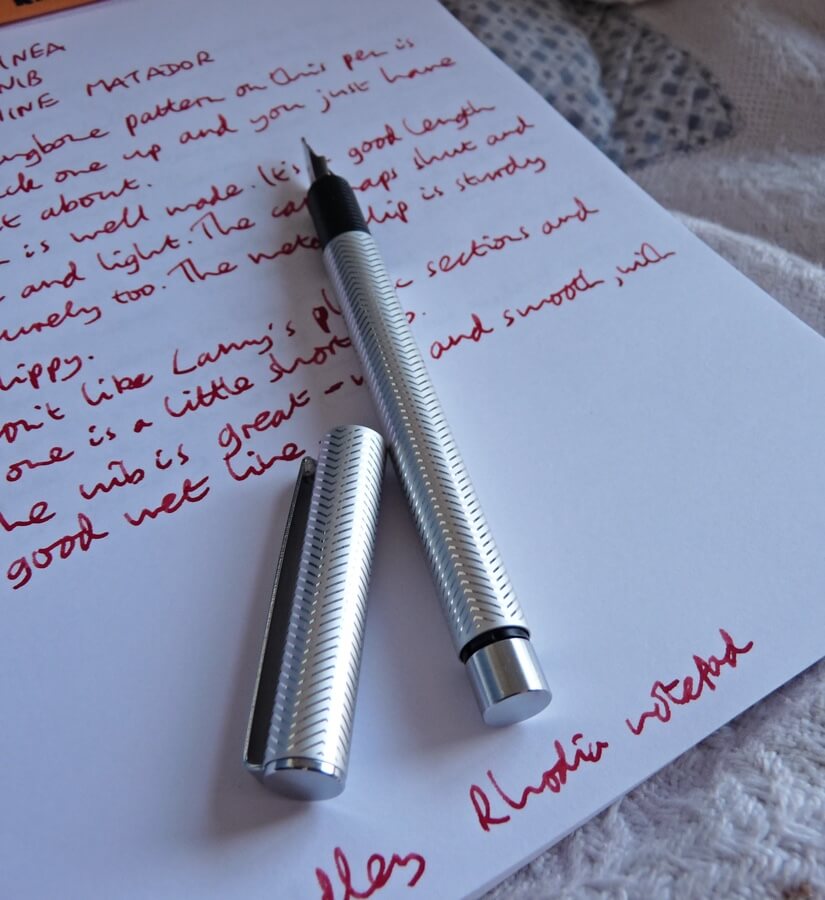 INEA
NIB
INE MATADOR
ngbone pattern on this pen is
ck one up and you just have
t about.
is well made. It's good length
and light. The cap snaps shut and
urely too. The metal clip is sturdy
lippy.
on't like Lamy's plastic sections and
one is a little short
he nib is great - and smooth, with
good wet line
Rhodia notepad